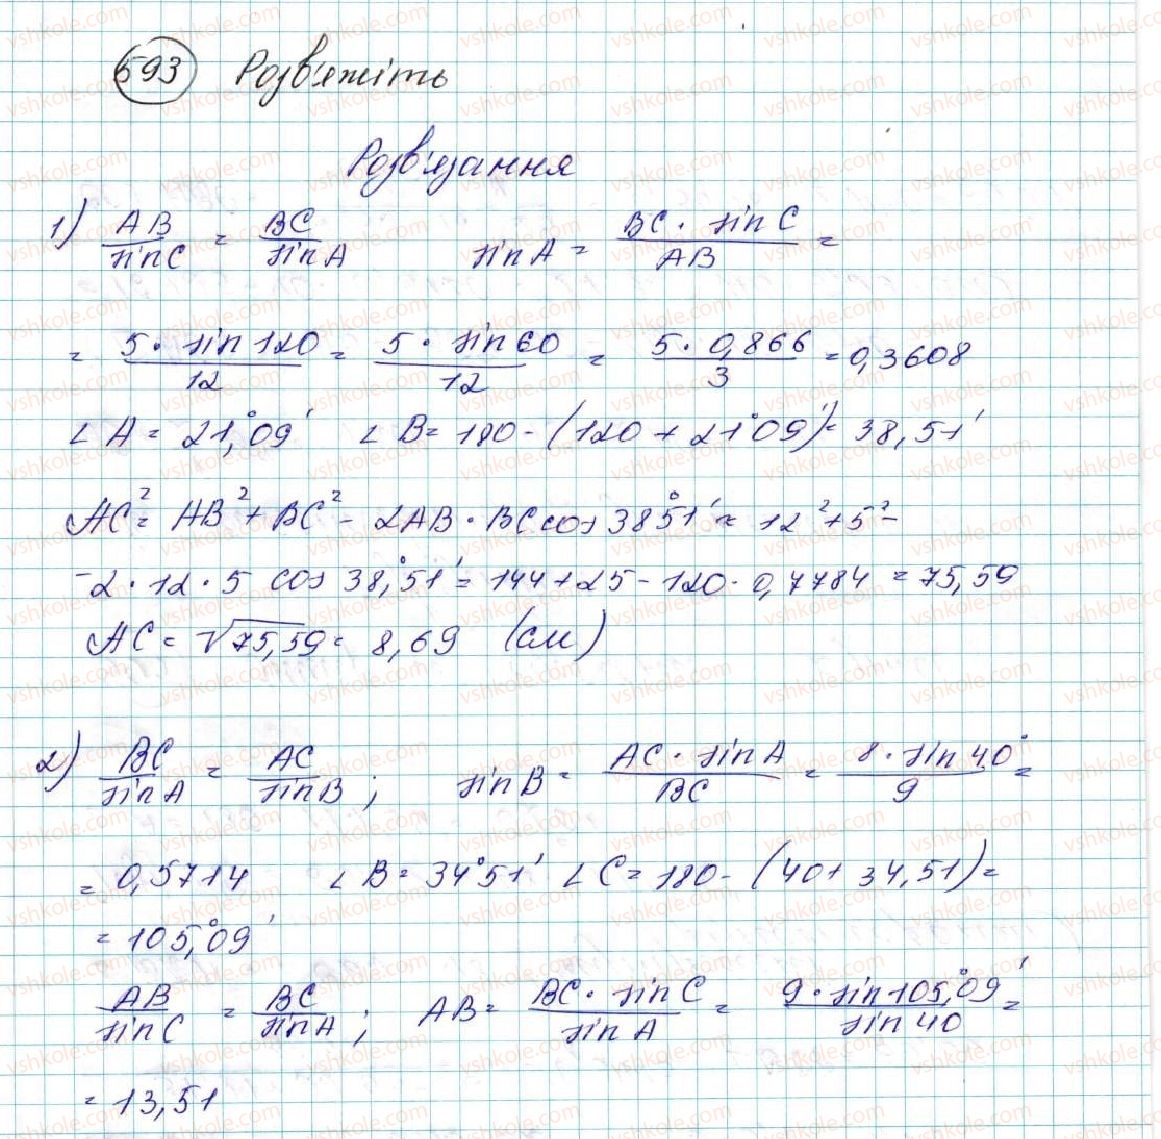 593 Розв'яжіть
Розв'язання
1) AB/sinC = BC/sinA sinA = BC · sinC/AB =
= 5 · sin120/12 = 5 · sin60/12 = 5 · 0,866/3 = 0,3608
∠A = 21,°09' ∠B = 180 - (120 + 21°09') = 38,51'
AC² = AB² + BC² - 2AB · BC cos 38°51' = 12² + 5² -
- 2 · 12 · 5 cos 38,°51' = 144 + 25 - 120 · 0,7784 = 75,59
AC = √75,59 = 8,69 (см)
2) BC/sinA = AC/sinB ; sinB = AC · sinA/BC = 8 · sin40°/9 =
= 0,5714 ∠B = 34°51' ∠C = 180 - (40 + 34,51) =
= 105,°09'
AB/sinC = BC/sinA ; AB = BC · sinC/sinA = 9 · sin105,°09'/sin40 =
= 13,51